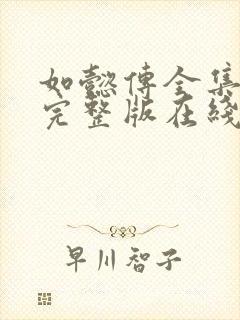 如懿傅全集
完整版在綫
早川智子